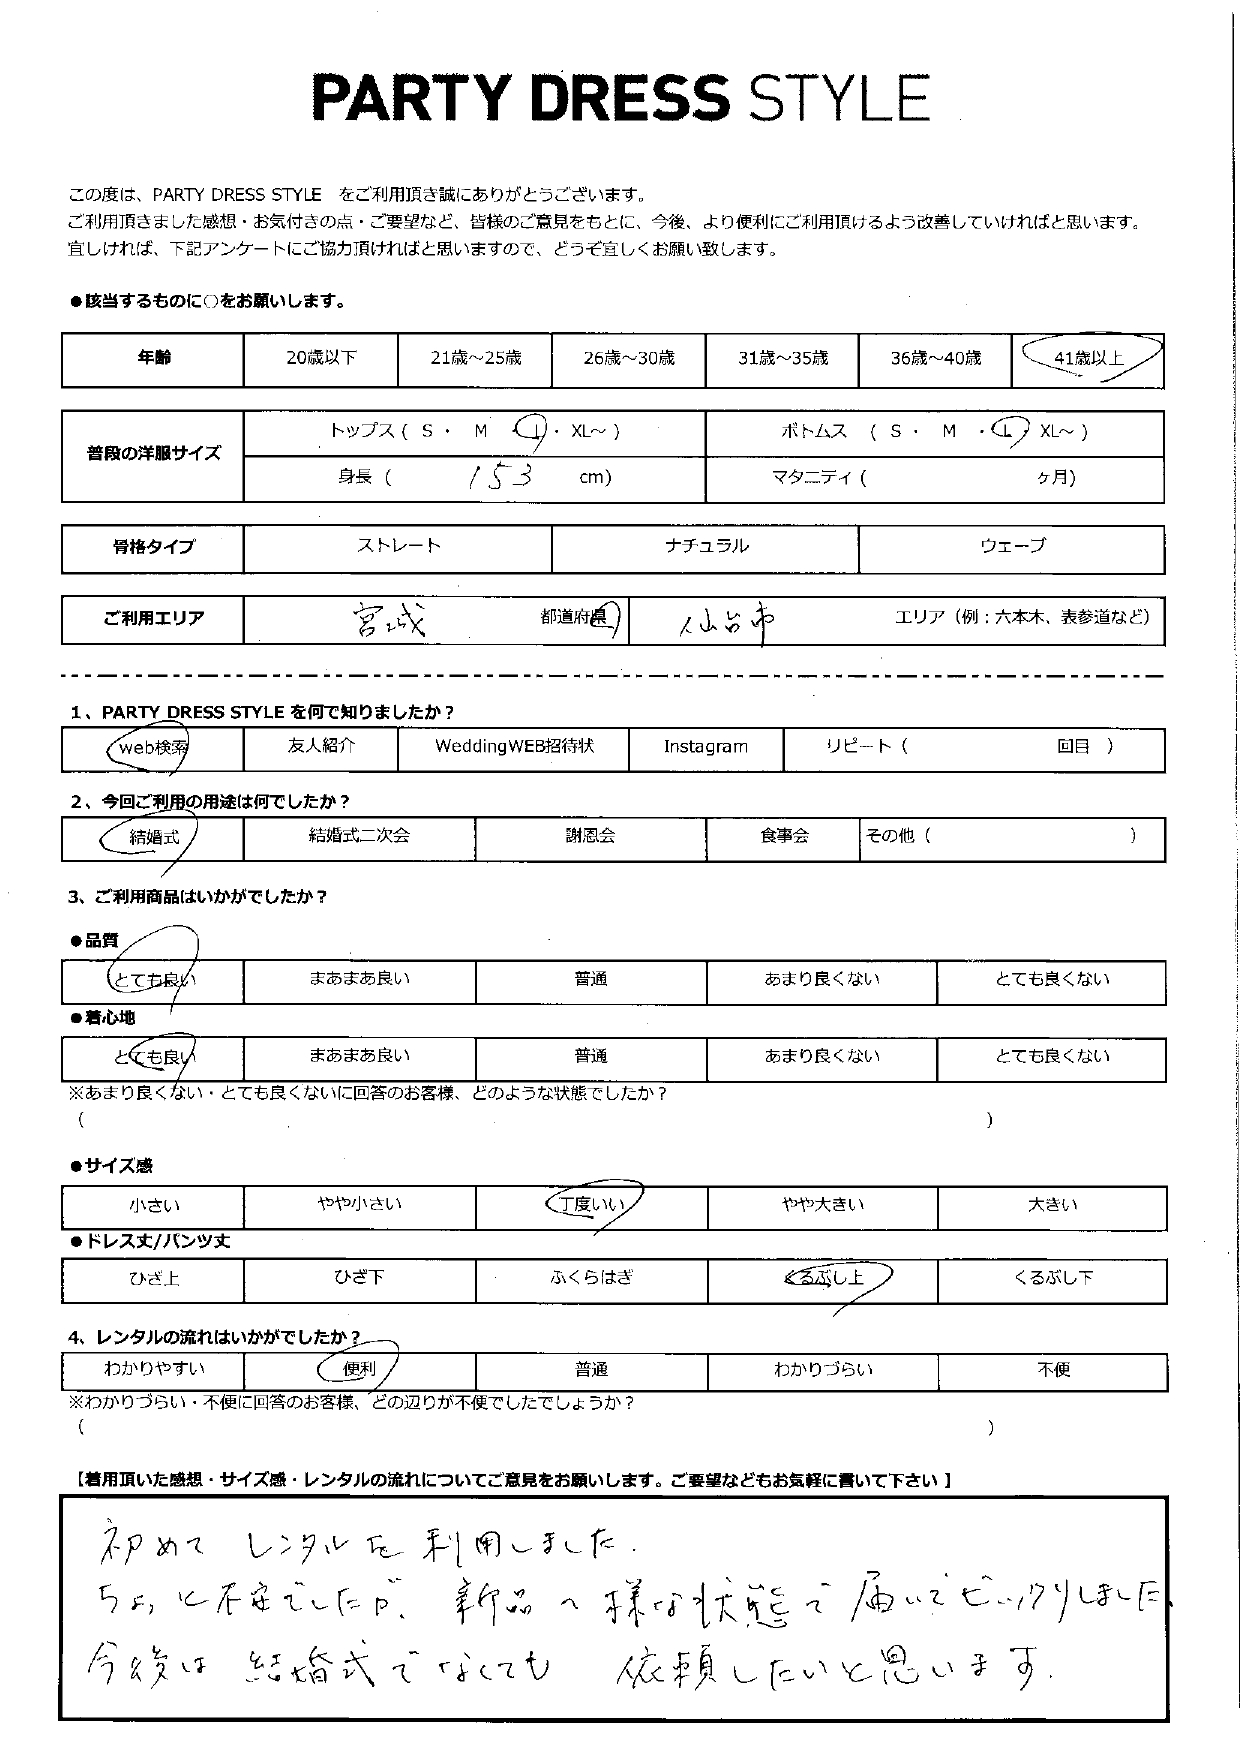 PARTY DRESS STYLE
この度は、PARTY DRESS STYLE をご利用頂き誠にありがとうございます。
ご利用頂きました感想・お気付きの点・ご要望など、皆様のご意見をもとに、今後、より便利にご利用頂けるよう改善していければと思います。
宜しければ、下記アンケートにご協力頂ければと思いますので、どうぞ宜しくお願い致します。
●該当するものに○をお願いします。
年齢 20歳以下 21歳～25歳 26歳～30歳 31歳～35歳 36歳～40歳 41歳以上
普段の洋服サイズ トップス ( S ・ M ・ L ・ XL～ ) ボトムス ( S ・ M ・ L ・ XL～ )
身長 ( 153 cm) マタニティ ( ヶ月)
骨格タイプ ストレート ナチュラル ウェーブ
ご利用エリア 宮城 都道府県 仙台市 エリア（例：六本木、表参道など）
1、PARTY DRESS STYLE を何で知りましたか？
web検索 友人紹介 WeddingWEB招待状 Instagram リピート ( 回目 )
2、今回ご利用の用途は何でしたか？
結婚式 結婚式二次会 謝恩会 食事会 その他 ( )
3、ご利用商品はいかがでしたか？
●品質
とても良い まあまあ良い 普通 あまり良くない とても良くない
●着心地
とても良い まあまあ良い 普通 あまり良くない とても良くない
※あまり良くない・とても良くないに回答のお客様、どのような状態でしたか？
( )
●サイズ感
小さい やや小さい 丁度いい やや大きい 大きい
●ドレス丈/パンツ丈
ひざ上 ひざ下 ふくらはぎ くるぶし上 くるぶし下
4、レンタルの流れはいかがでしたか？
わかりやすい 便利 普通 わかりづらい 不便
※わかりづらい・不便に回答のお客様、どの辺りが不便でしたでしょうか？
( )
【着用頂いた感想・サイズ感・レンタルの流れについてご意見をお願いします。ご要望などもお気軽に書いて下さい 】
初めて レンタルを利用しました.
ちょっと不安でしたが、新品の様な状態で届いてビックリしました.
今後は 結婚式でなくても 依頼したいと思います.